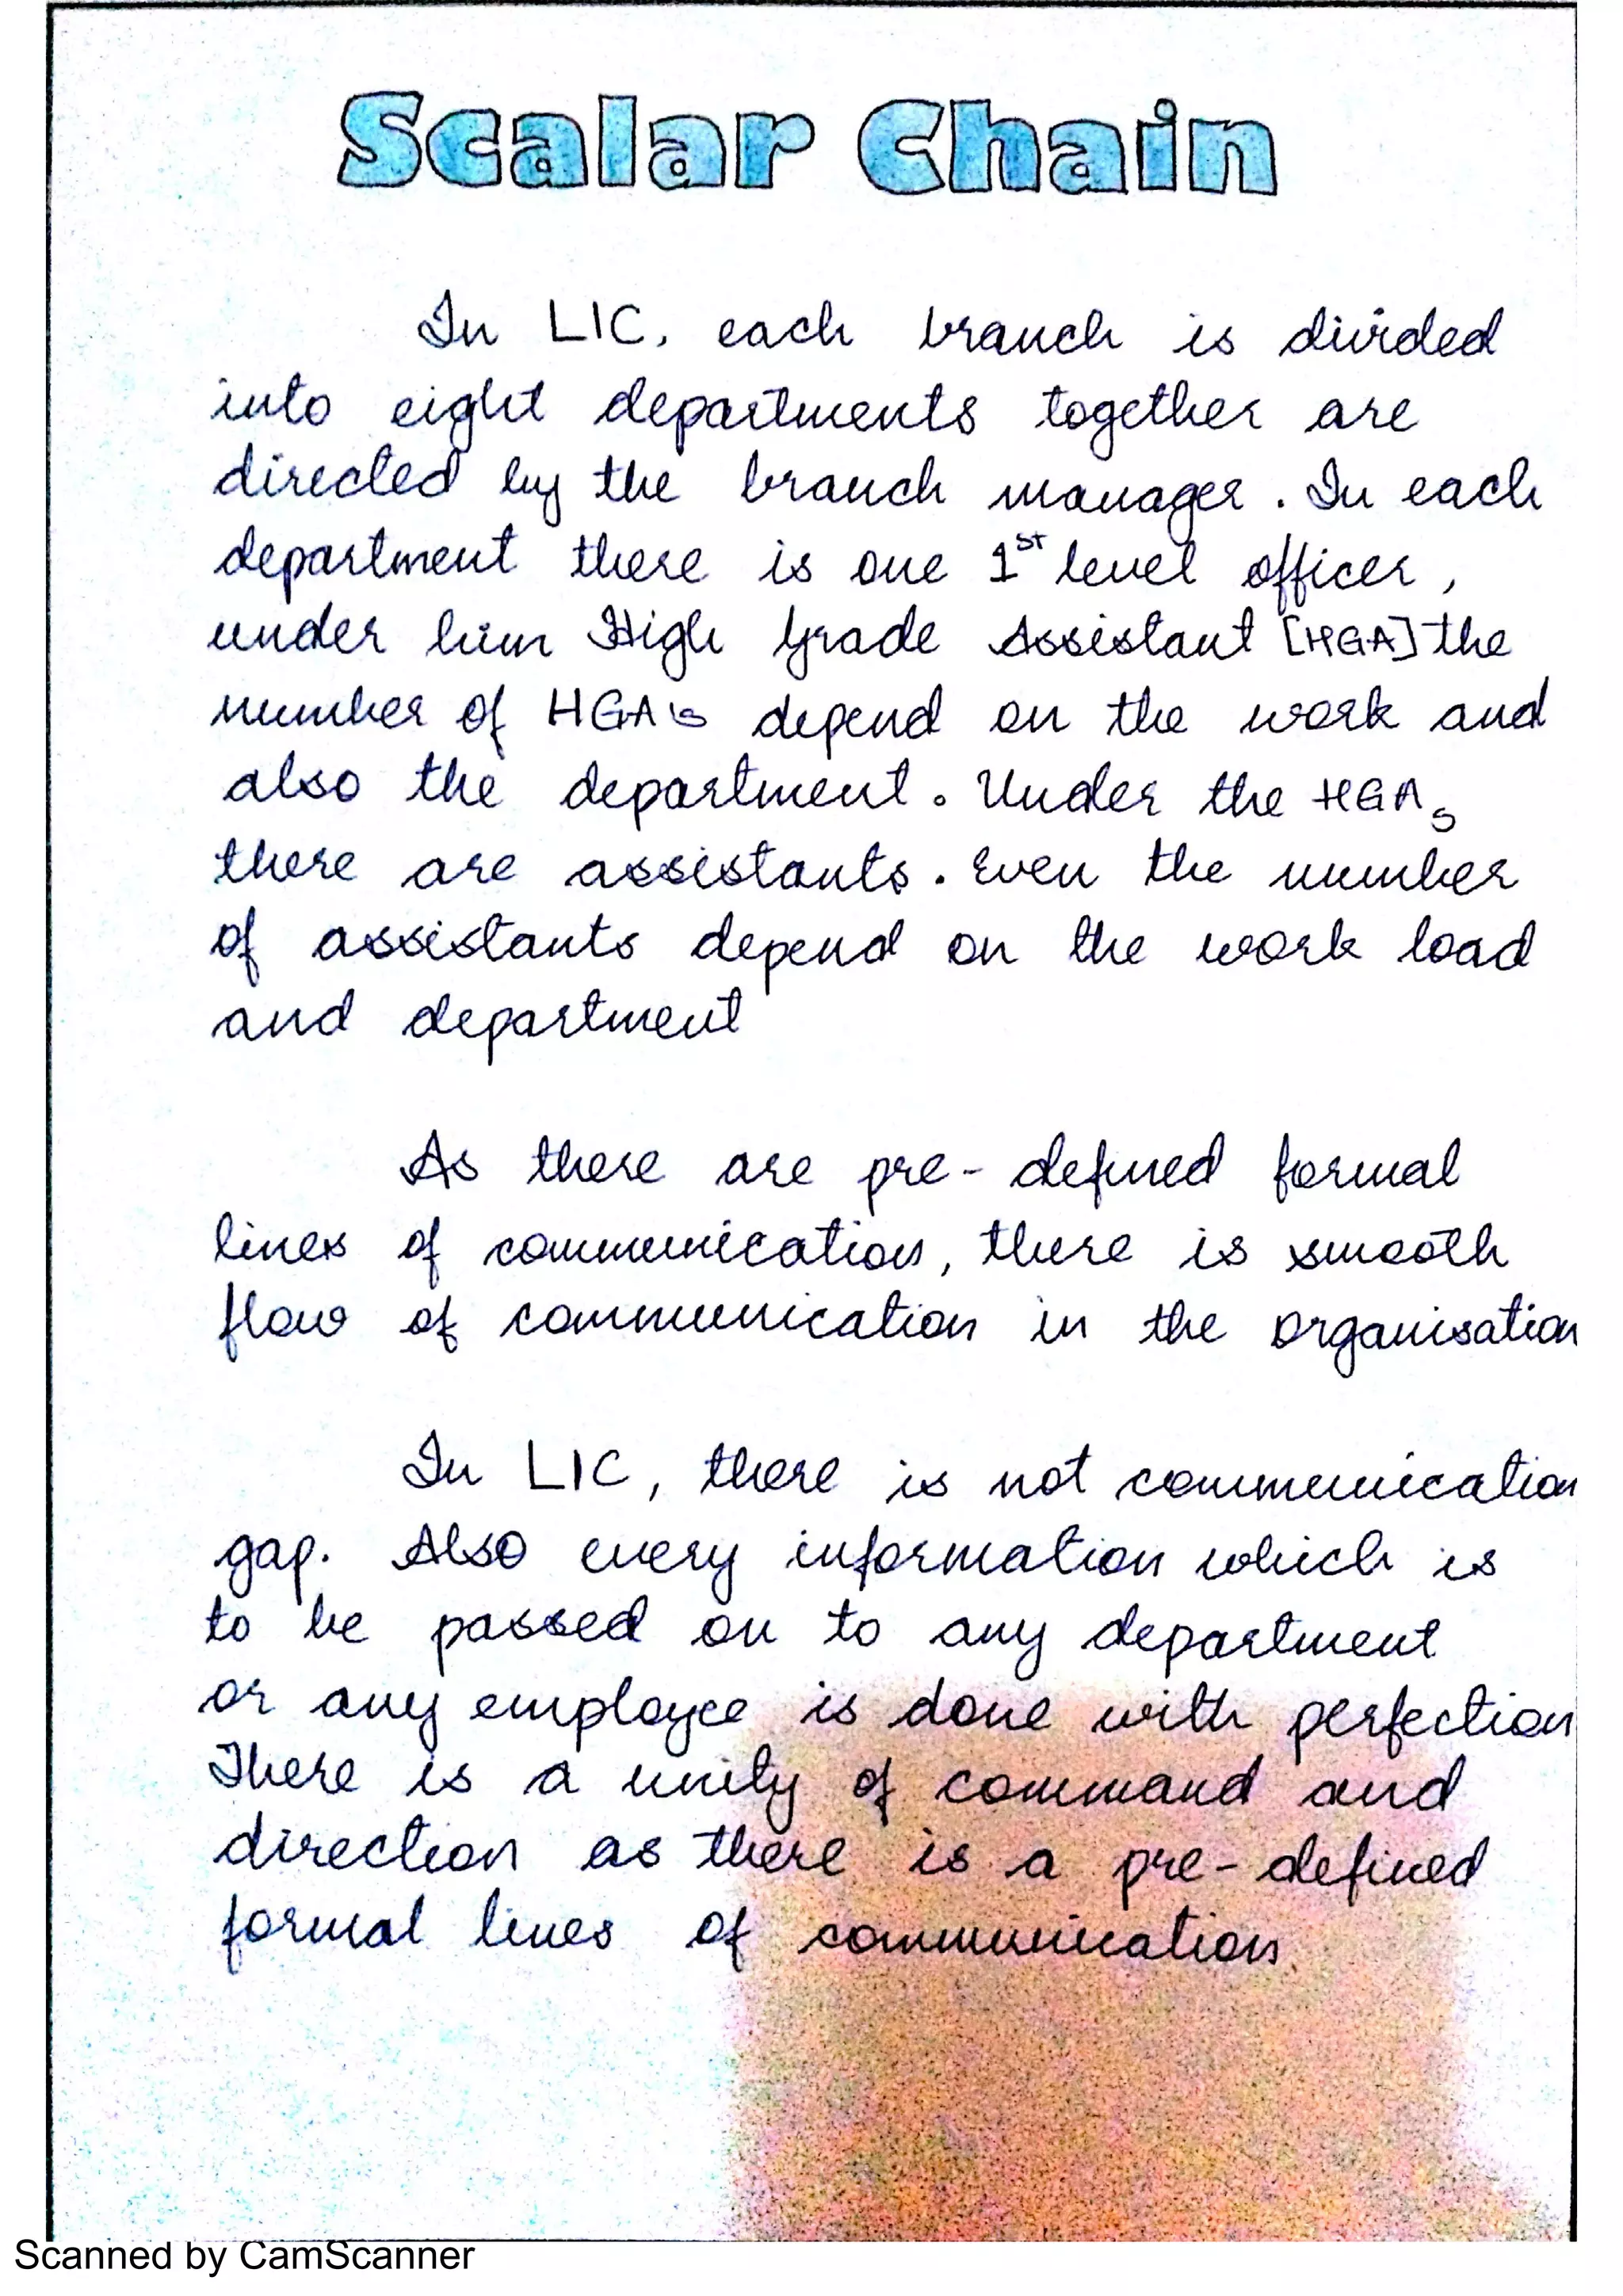 Scalar Chain
In LIC, each branch is divided
into eight departments together are
directed by the branch manager. In each
department there is one 1st level officer,
under him High Grade Assistant [HGA] the
number of HGA's depend on the work and
also the department. Under the HGAs
there are assistants. Even the number
of assistants depend on the work load
and department
As there are pre-defined formal
lines of communication, there is smooth
flow of communication in the organisation
In LIC, there is not communication
gap. Also every information which is
to be passed on to any department
or any employee is done with perfection
There is a unity of command and
direction as there is a pre-defined
formal lines of communication
Scanned by CamScanner